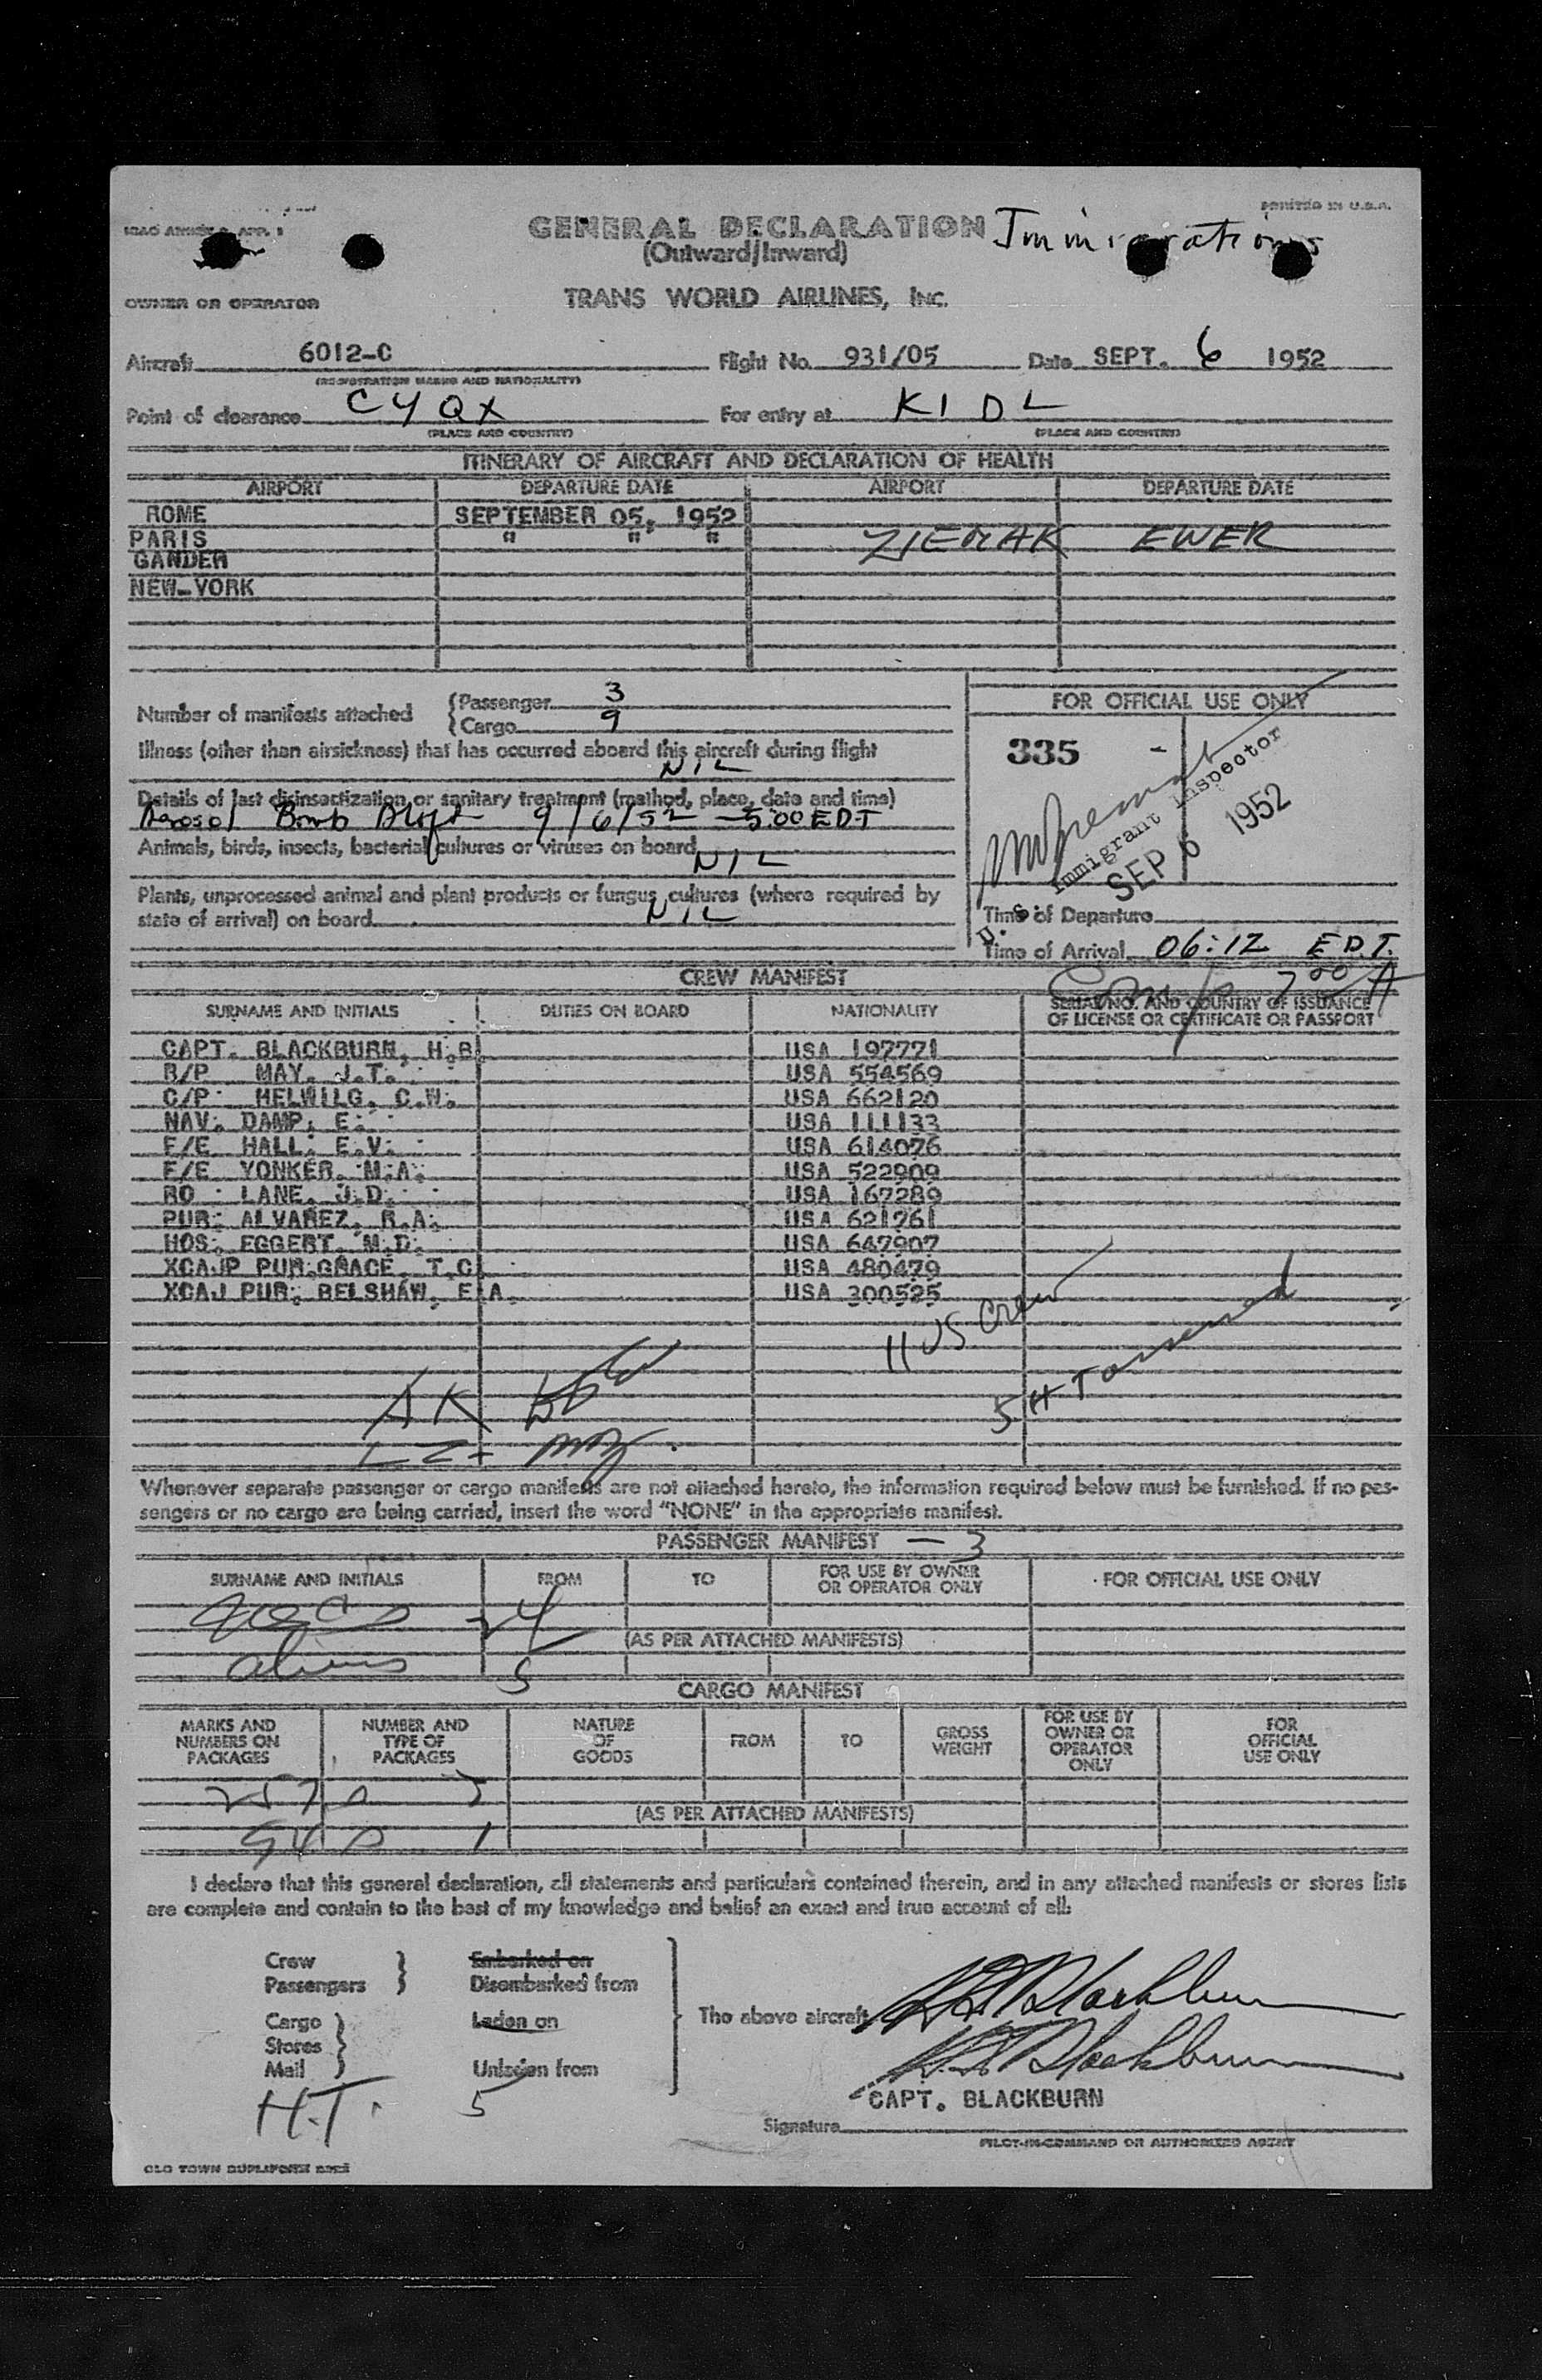 PRINTED IN U.S.A.
GENERAL DECLARATION Immigrations
(Outward/Inward)
OWNER OR OPERATOR TRANS WORLD AIRLINES, INC.
Aircraft 6012-C Flight No. 931/05 Date SEPT. 6 1952
(REGISTRATION MARKS AND NATIONALITY)
Point of clearance CYQX For entry at KIDL
(PLACE AND COUNTRY) (PLACE AND COUNTRY)
ITINERARY OF AIRCRAFT AND DECLARATION OF HEALTH
AIRPORT DEPARTURE DATE AIRPORT DEPARTURE DATE
ROME SEPTEMBER 05, 1952
PARIS " " " EWER
GANDER
NEW-YORK
Number of manifests attached { Passenger 3
{ Cargo 9
Illness (other than airsickness) that has occurred aboard this aircraft during flight
NIL
Details of last disinsectization or sanitary treatment (method, place, date and time)
Aerosol Bomb 9/6/52 - 5:00 EDT
Animals, birds, insects, bacterial cultures or viruses on board NIL
Plants, unprocessed animal and plant products or fungus cultures (where required by
state of arrival) on board NIL
FOR OFFICIAL USE ONLY
335 -
U.S. Immigrant Inspector
SEP 6 1952
Time of Departure
Time of Arrival 06:12 E.D.T.
CREW MANIFEST
SURNAME AND INITIALS DUTIES ON BOARD NATIONALITY SERIAL NO. AND COUNTRY OF ISSUANCE
OF LICENSE OR CERTIFICATE OR PASSPORT
CAPT. BLACKBURN, H.B. USA 197771
R/P MAY. J.T. USA 554569
C/P HELWILG. C.W. USA 662120
NAV. DAMP. E. USA 111133
F/E HALL. E.V. USA 614076
F/E YONKER. M.A. USA 522909
RO LANE. J.D. USA 167289
PUR. ALVAREZ. R.A. USA 621761
HOS. EGGERT. M.D. USA 647907
XCAJP PUR.GRACE. T.C USA 480479
XCAJ PUR. BELSHAW. E.A. USA 300525
11 US Crew
5 HT
AK
Whenever separate passenger or cargo manifests are not attached hereto, the information required below must be furnished. If no pas-
sengers or no cargo are being carried, insert the word "NONE" in the appropriate manifest.
PASSENGER MANIFEST - 3
SURNAME AND INITIALS FROM TO FOR USE BY OWNER
OR OPERATOR ONLY FOR OFFICIAL USE ONLY
24
(AS PER ATTACHED MANIFESTS)
aliens 5
CARGO MANIFEST
MARKS AND
NUMBERS ON
PACKAGES NUMBER AND
TYPE OF
PACKAGES NATURE
OF
GOODS FROM TO GROSS
WEIGHT FOR USE BY
OWNER OR
OPERATOR
ONLY FOR
OFFICIAL
USE ONLY
(AS PER ATTACHED MANIFESTS)
I declare that this general declaration, all statements and particulars contained therein, and in any attached manifests or stores lists
are complete and contain to the best of my knowledge and belief an exact and true account of all:
Crew Embarked on
Passengers } Disembarked from
Cargo Laden on
Stores }
Mail Unladen from
The above aircraft H.B. Blackburn
H.B. Blackburn
H.T. 5
CAPT. BLACKBURN
Signature
PILOT-IN-COMMAND OR AUTHORIZED AGENT